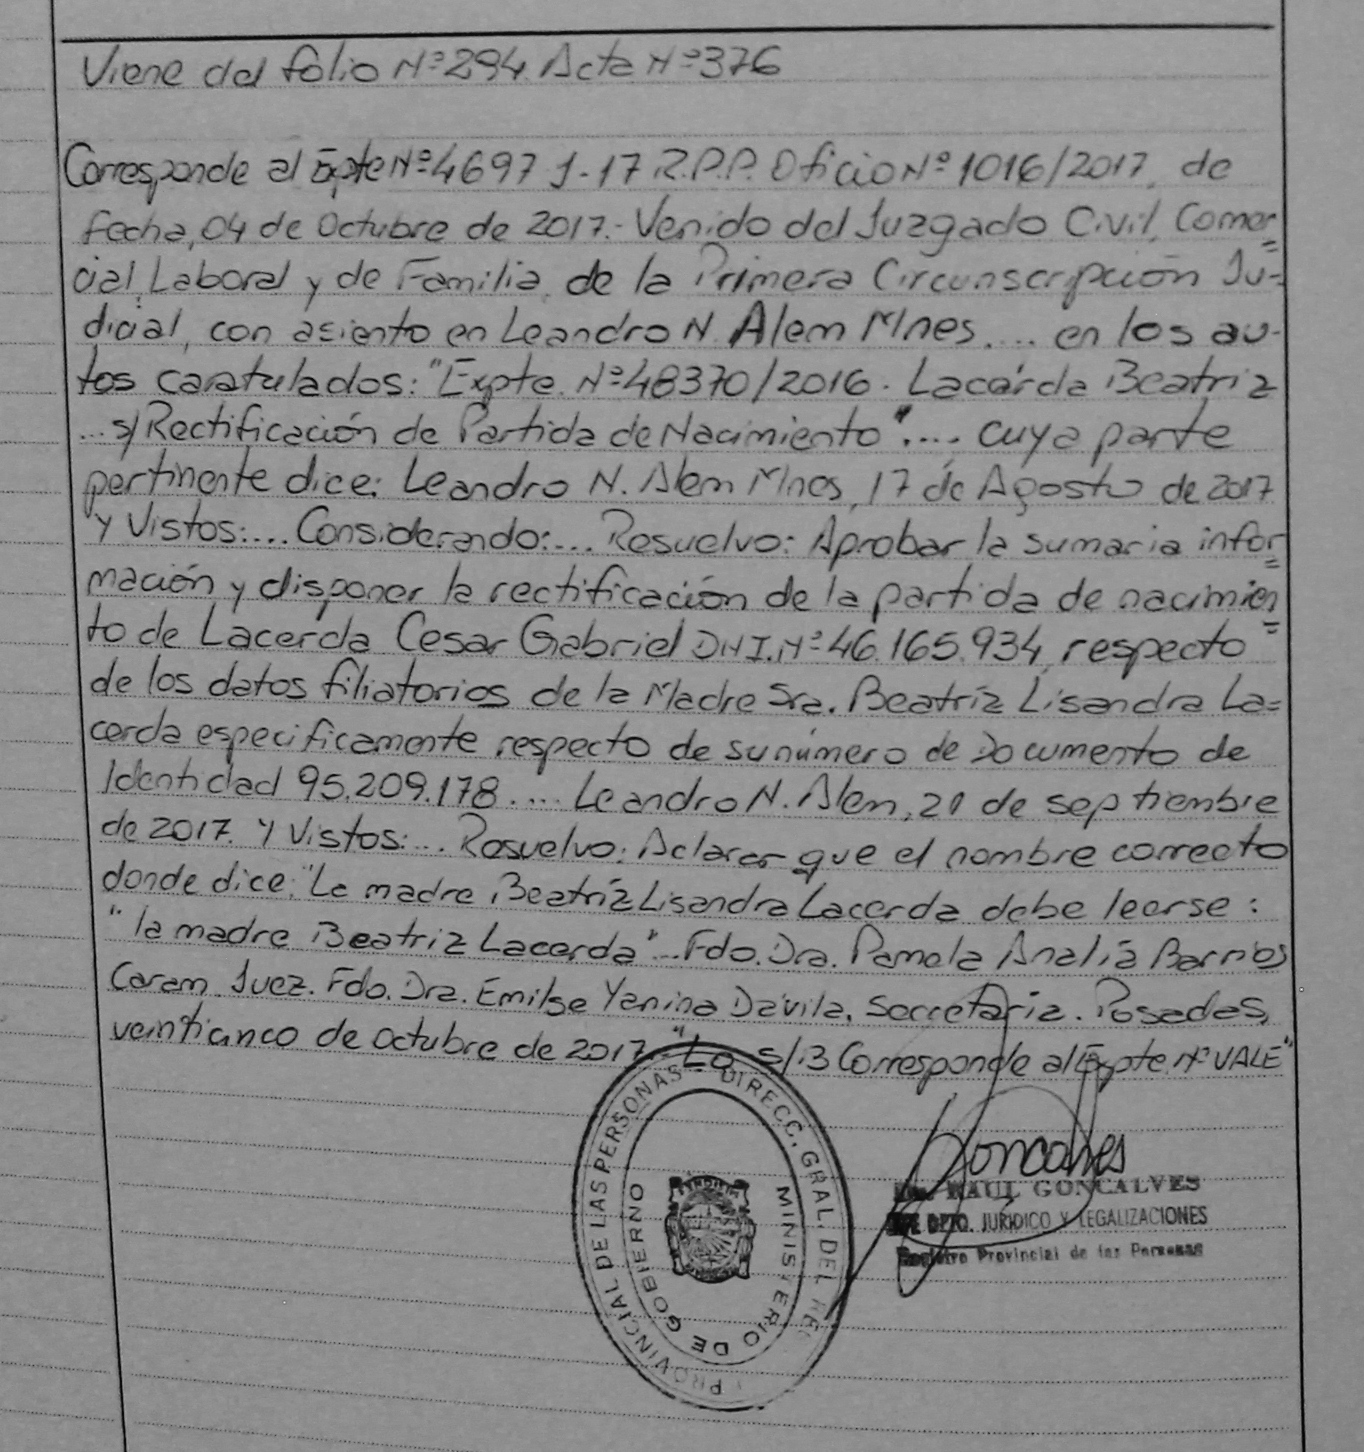 Viene del folio Nº294. Acta Nº376
Corresponde al Expte Nº4697 J-17 R.P.P. Oficio Nº 1016/2017, de
fecha, 04 de Octubre de 2017.- Venido del Juzgado Civil, Comer=
cial, Laboral y de Familia, de la Primera Circunscripción Ju-
dicial, con asiento en Leandro N. Alem Mnes.... en los au-
tos caratulados: "Expte. Nº48370/2016. Lacerda Beatriz
...s/Rectificación de Partida de Nacimiento".... cuya parte
pertinente dice: Leandro N. Alem Mnes, 17 de Agosto de 2017
Y Vistos:.... Considerando:... Resuelvo: Aprobar la sumaria infor=
mación y disponer la rectificación de la partida de nacimien=
to de Lacerda Cesar Gabriel DNI. Nº46.165.934, respecto
de los datos filiatorios de la Madre Sra. Beatríz Lisandra La=
cerda especificamente respecto de su número de Documento de
Identidad 95.209.178.... Leandro N. Alem, 20 de septiembre
de 2017. Y Vistos:... Resuelvo: Aclarar que el nombre correcto
donde dice: "La madre Beatríz Lisandra Lacerda debe leerse:
"la madre Beatriz Lacerda"... Fdo. Dra. Pamela Analía Barrios
Caram. Juez. Fdo. Dra. Emilse Yanina Dávila, Secretaria. Posadas,
veinticinco de Octubre de 2017.- "Lo s/.3 Corresponde al Expte. Nº VALE"
DIRECC. GRAL. DEL REG PROVINCIAL DE LAS PERSONAS
MINISTERIO DE GOBIERNO
Goncalves
RAUL GONCALVES
JEFE DPTO. JURIDICO Y LEGALIZACIONES
Registro Provincial de las Personas